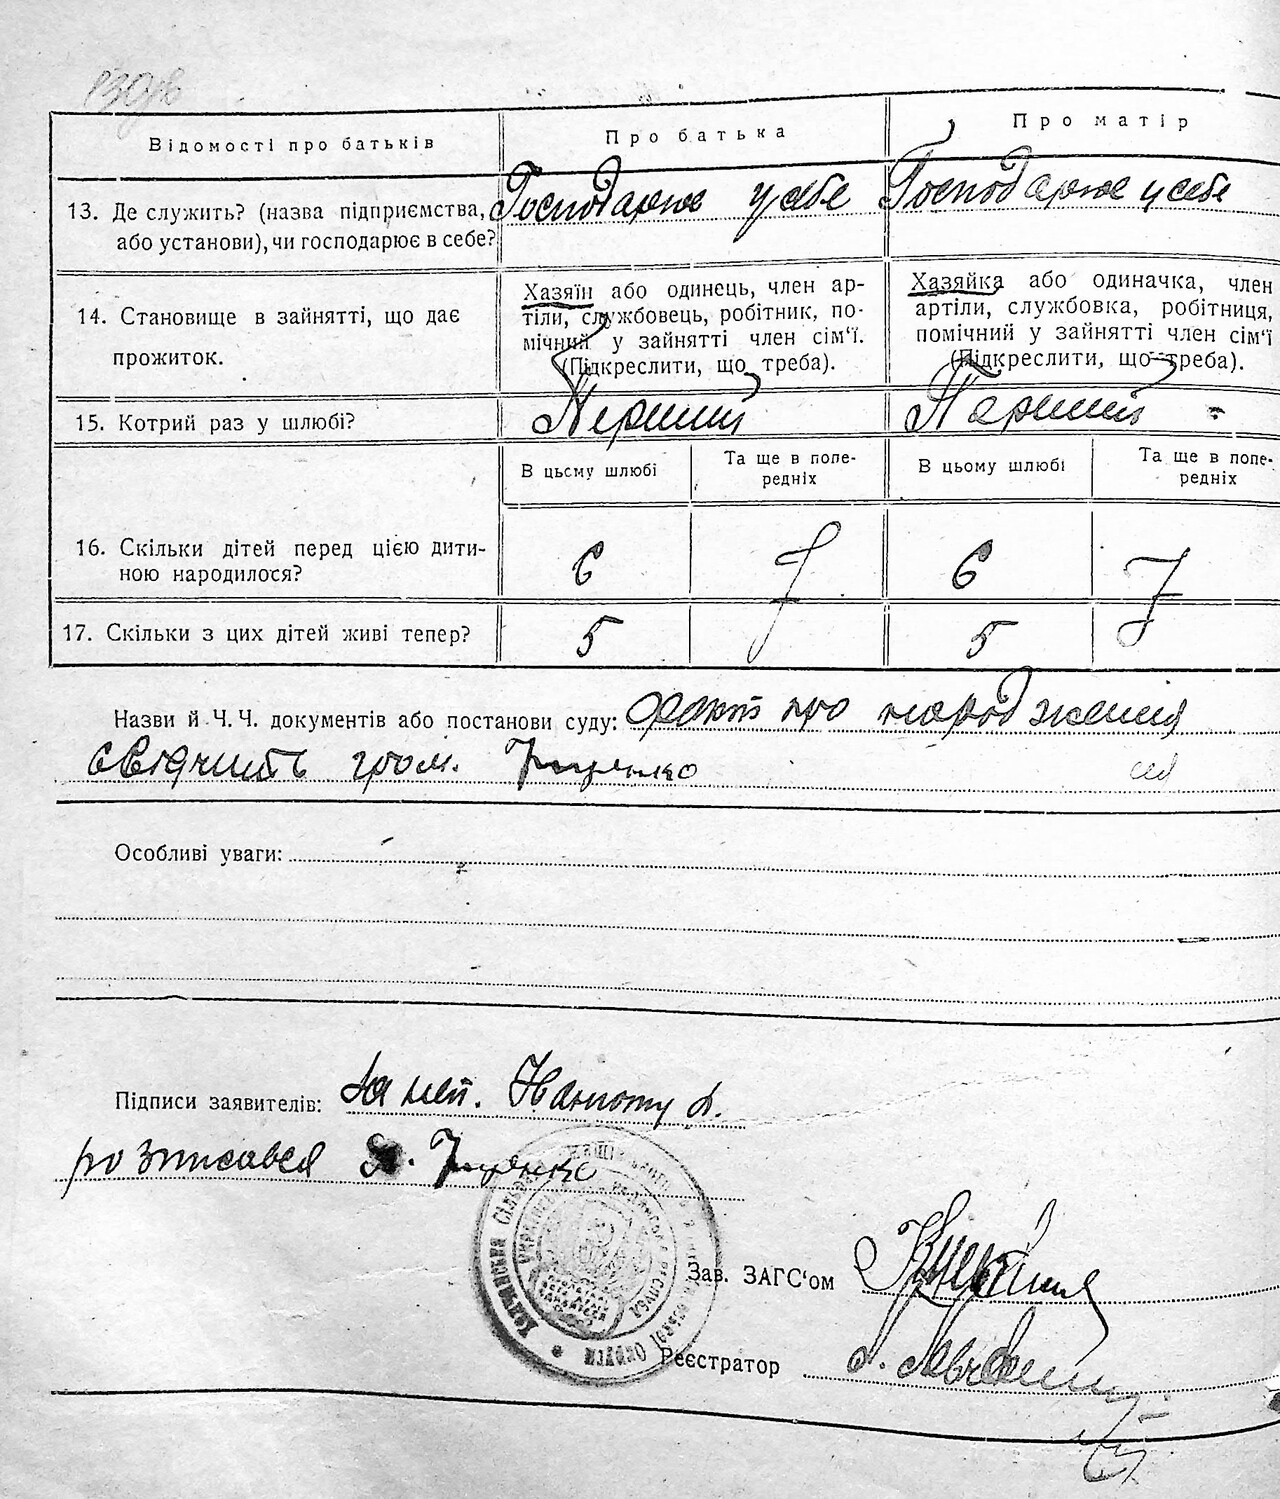 Відомості про батьків
Про батька
Про матір
13. Де служить? (назва підприємства,
або установи), чи господарює в себе?
Господарює у себе
Господарює у себе
14. Становище в зайнятті, що дає
прожиток.
Хазяїн або одинець, член ар-
тіли, службовець, робітник, по-
мічний у зайнятті член сім'ї.
(Підкреслити, що треба).
Хазяйка або одиначка, член
артіли, службовка, робітниця,
помічний у зайнятті член сім'ї
(Підкреслити, що треба).
15. Котрий раз у шлюбі?
Перший
Перший
В цьому шлюбі
Та ще в попе-
редніх
В цьому шлюбі
Та ще в попе-
редніх
16. Скільки дітей перед цією дити-
ною народилося?
6
6
17. Скільки з цих дітей живі тепер?
5
5
Назви й Ч. Ч. документів або постанови суду: факт про народження
свідчить гром.
Особливі уваги:
Підписи заявителів: За неп.
розписався
Зав. ЗАГС'ом
Реєстратор